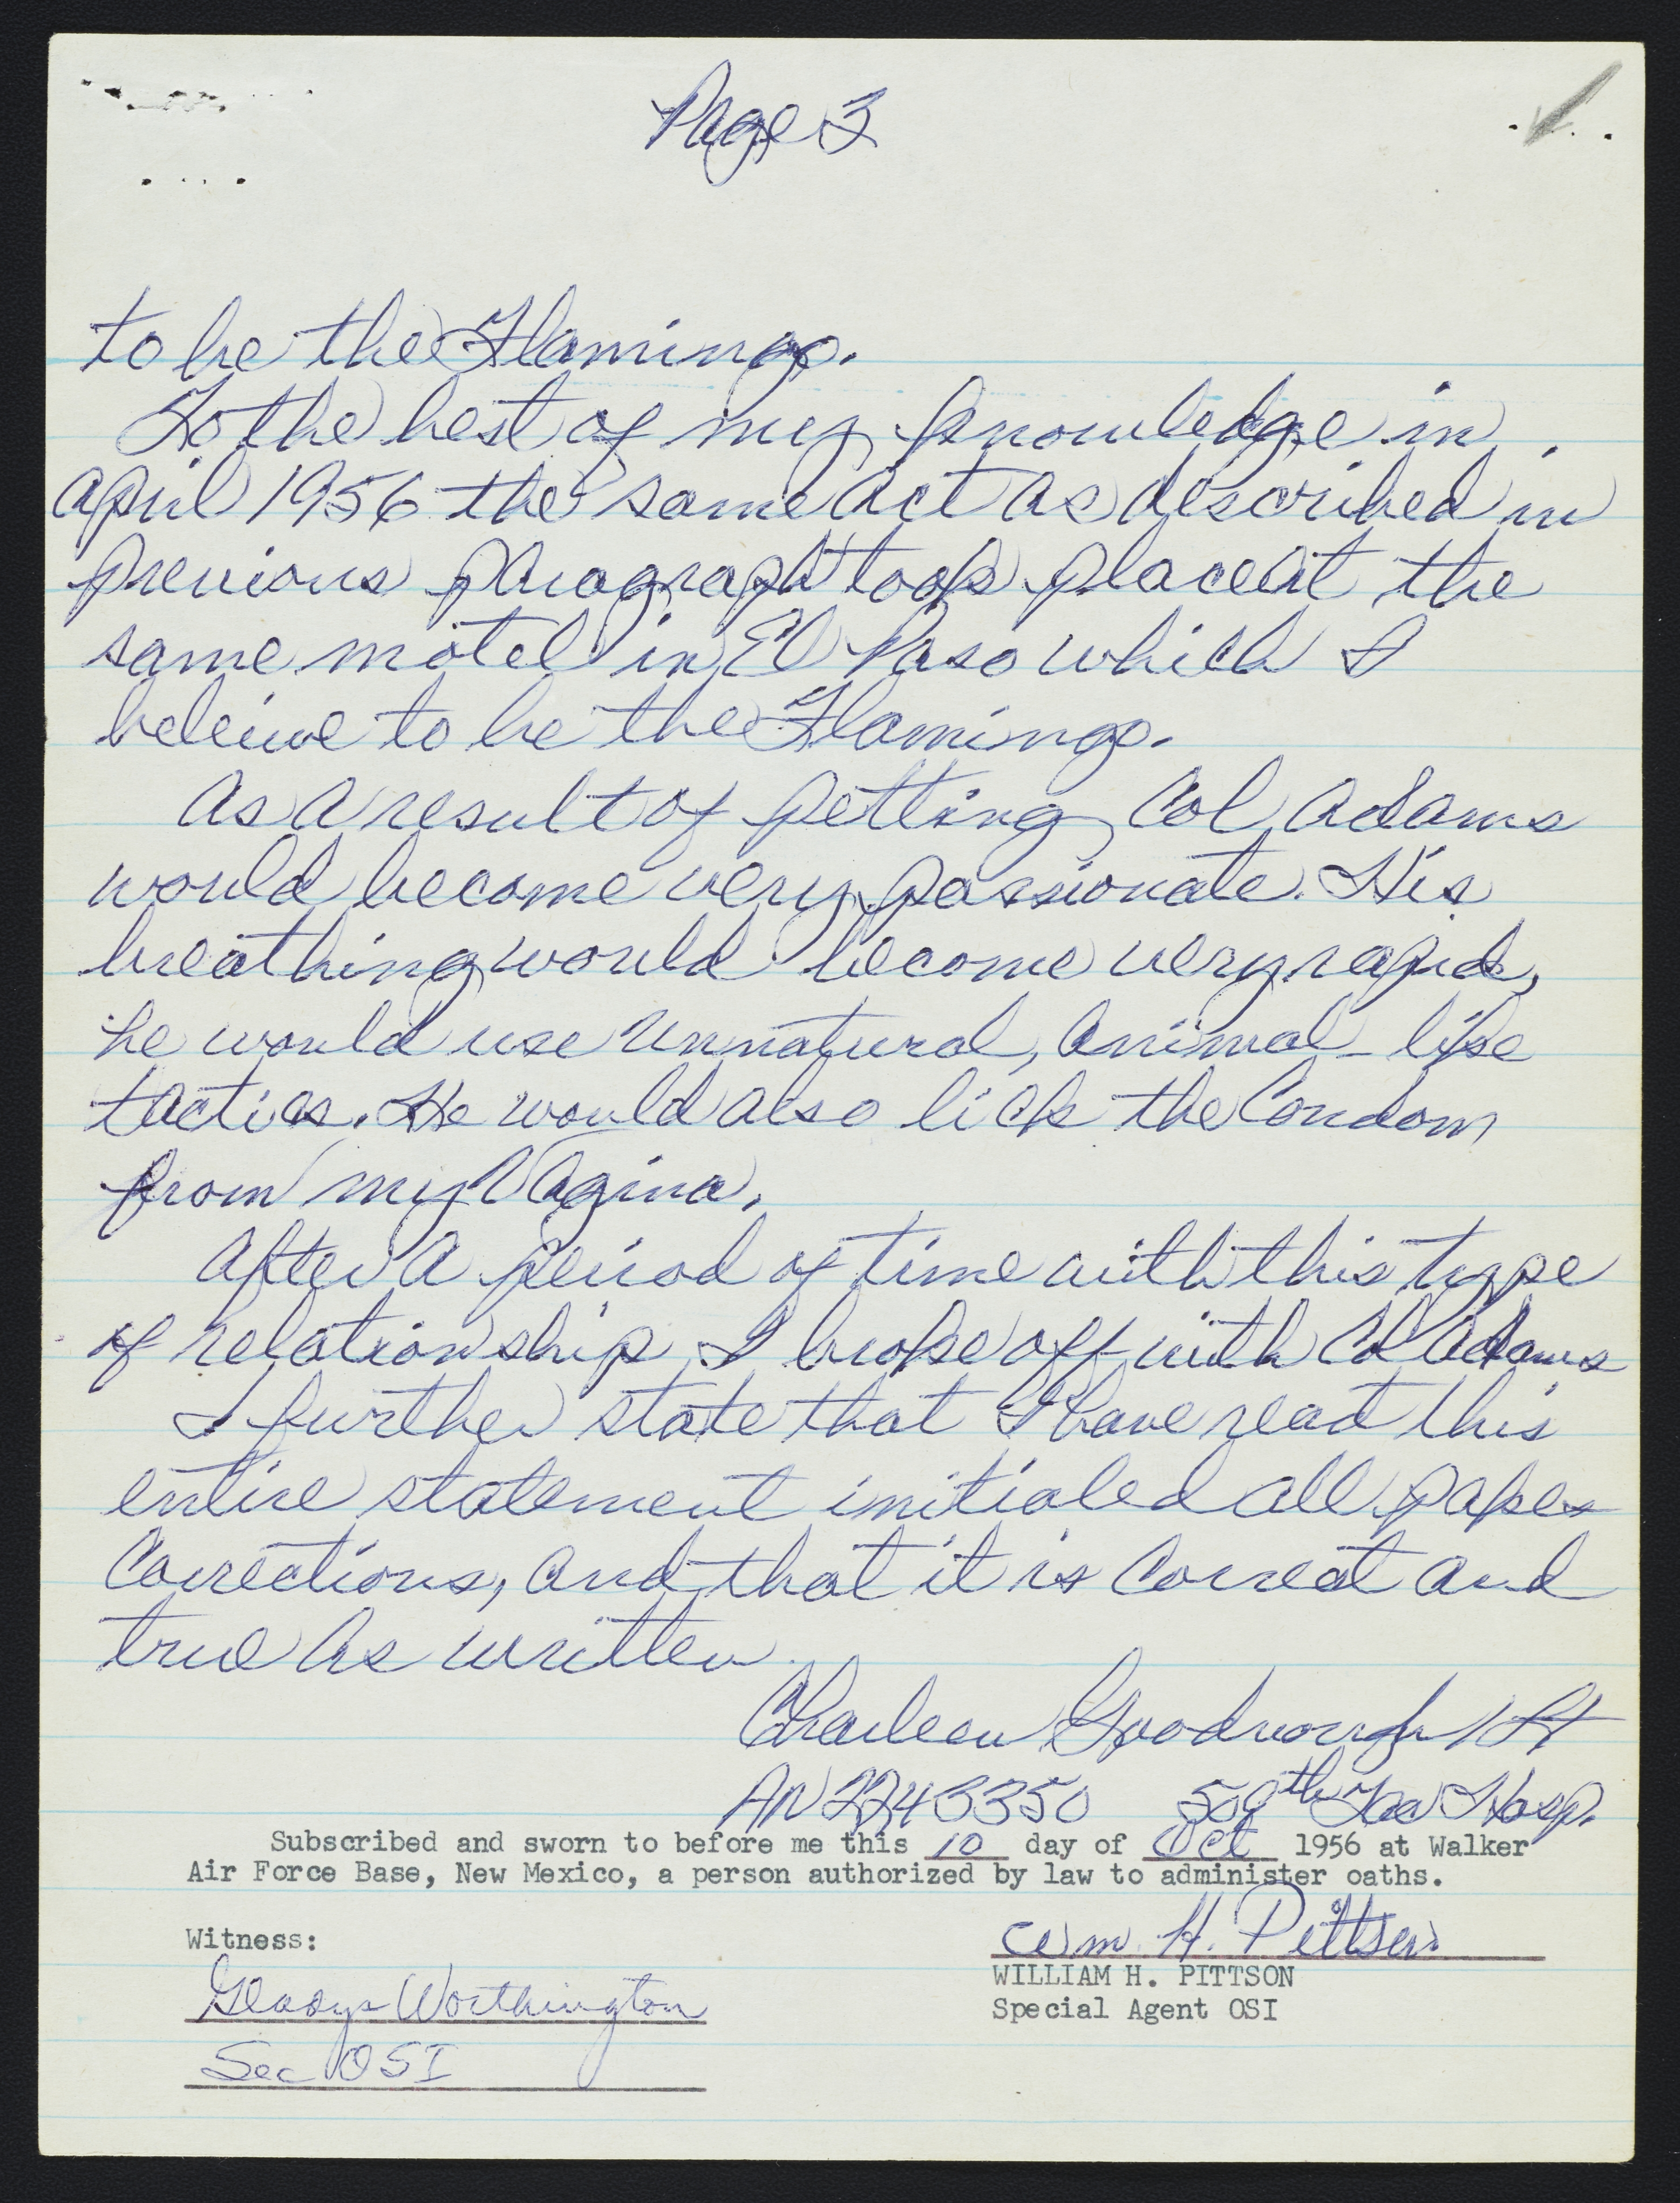 Page 3
to be the Flamingo.
To the best of my knowledge in
April 1956 the same act as described in
previous paragraph took place at the
same motel in El Paso which I
beleive to be the Flamingo.
As a result of petting, Col Adams
would become very passionate. His
breathing would become very rapid,
he would use unnatural, animal-like
tactics. He would also lick the Condom
from my Vagina.
After a period of time with this type
of relationship I broke off with Col Adams
I further state that I have read this
entire statement initialed all pages
Corrections, and that it is Correct and
true as written.
Charleen Goodnough 1st Lt
AN 2243350 509th Tac Hosp.
Subscribed and sworn to before me this 10 day of Oct 1956 at Walker
Air Force Base, New Mexico, a person authorized by law to administer oaths.
Witness:
Wm. H. Pittson
WILLIAM H. PITTSON
Gladys Worthington
Special Agent OSI
Sec OSI